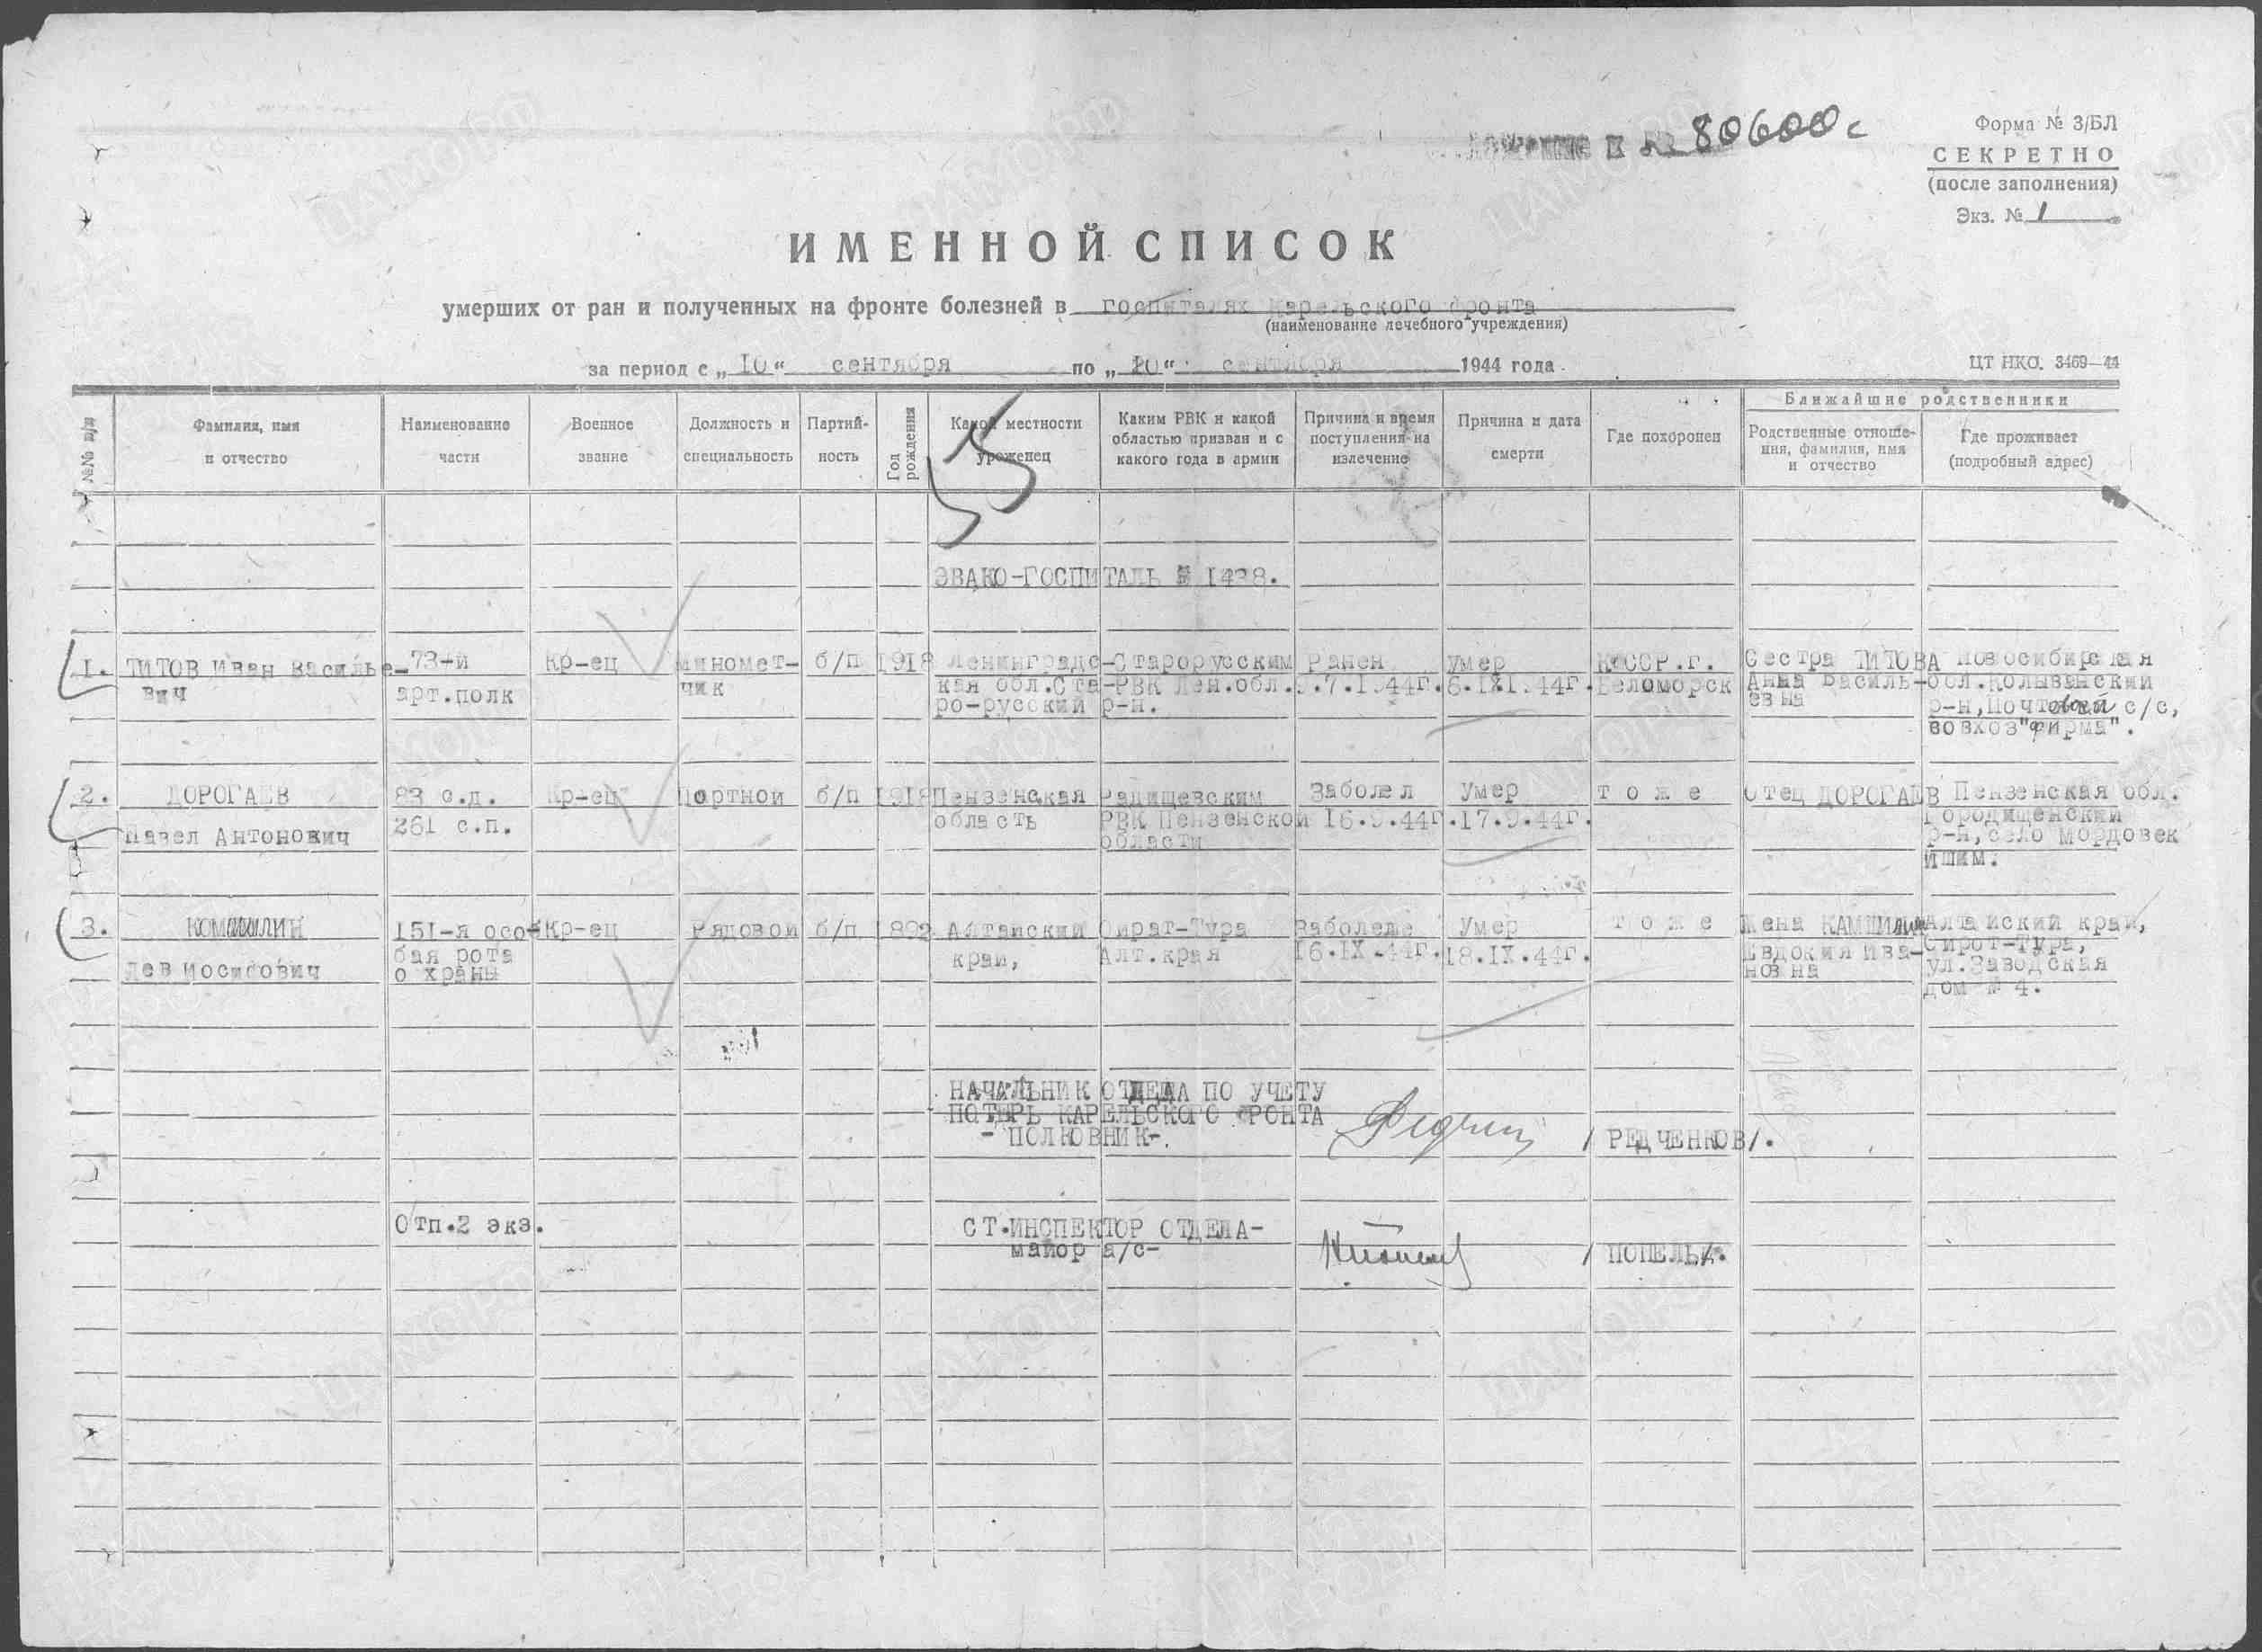 80600с
Форма № 3/БЛ
СЕКРЕТНО
(после заполнения)
Экз. № 1
ИМЕННОЙ СПИСОК
умерших от ран и полученных на фронте болезней в госпиталях Карельского фронта
(наименование лечебного учреждения)
за период с „10“ сентября по „20“ сентября 1944 года
ЦТ НКО. 3469—44
№№ п/п
Фамилия, имя и отчество
Наименование части
Военное звание
Должность и специальность
Партийность
Год рождения
Какой местности уроженец
Каким РВК и какой областью призван и с какого года в армии
Причина и время поступления на излечение
Причина и дата смерти
Где похоронен
Ближайшие родственники
Родственные отношения, фамилия, имя и отчество
Где проживает (подробный адрес)
55
ЭВАКО-ГОСПИТАЛЬ № 1438.
1. ТИТОВ Иван Василье- 73-й Кр-ец миномет- б/п 1918 Ленинградс- Старорусским Ранен Умер КФССР.г. Сестра ТИТОВА Новосибирская
вич арт.полк чик кая обл.Ста- РВК Лен.обл. .7.1944г. 6.IX.44г. Беломорск Анна Василь- обл.Колыванский
ро-русский р-н. евна р-н,Почтовый с/с,
совхоз"фирма".
2. ДОРОГАЕВ 83 с.д. Кр-ец Портной б/п 1918 Пензенская Радищевским Заболел Умер тоже Отец ДОРОГАЕВ Пензенская обл.
Павел Антонович 261 с.п. область РВК Пензенской 16.9.44г. 17.9.44г. Городищенский
области р-н,село Мордовск
Ишим.
3. Кр-ец Рядовой б/п 1892 Алтайский Ойрат-Тура Заболел Умер тоже Жена Алтайский край,
Лев Иосифович 151-я особая рота охраны край, Алт.края 16.IX.44г. 18.IX.44г. Евдокия Ива- Ойрот-Тура,
новна ул.Заводская
дом № 4.
НАЧАЛЬНИК ОТДЕЛА ПО УЧЕТУ
ПОТЕРЬ КАРЕЛЬСКОГО ФРОНТА
- ПОЛКОВНИК-. / РЕДЧЕНКОВ/.
Отп.2 экз.
СТ.ИНСПЕКТОР ОТДЕЛА-
майор а/с- / ПОПЕЛЬ/.